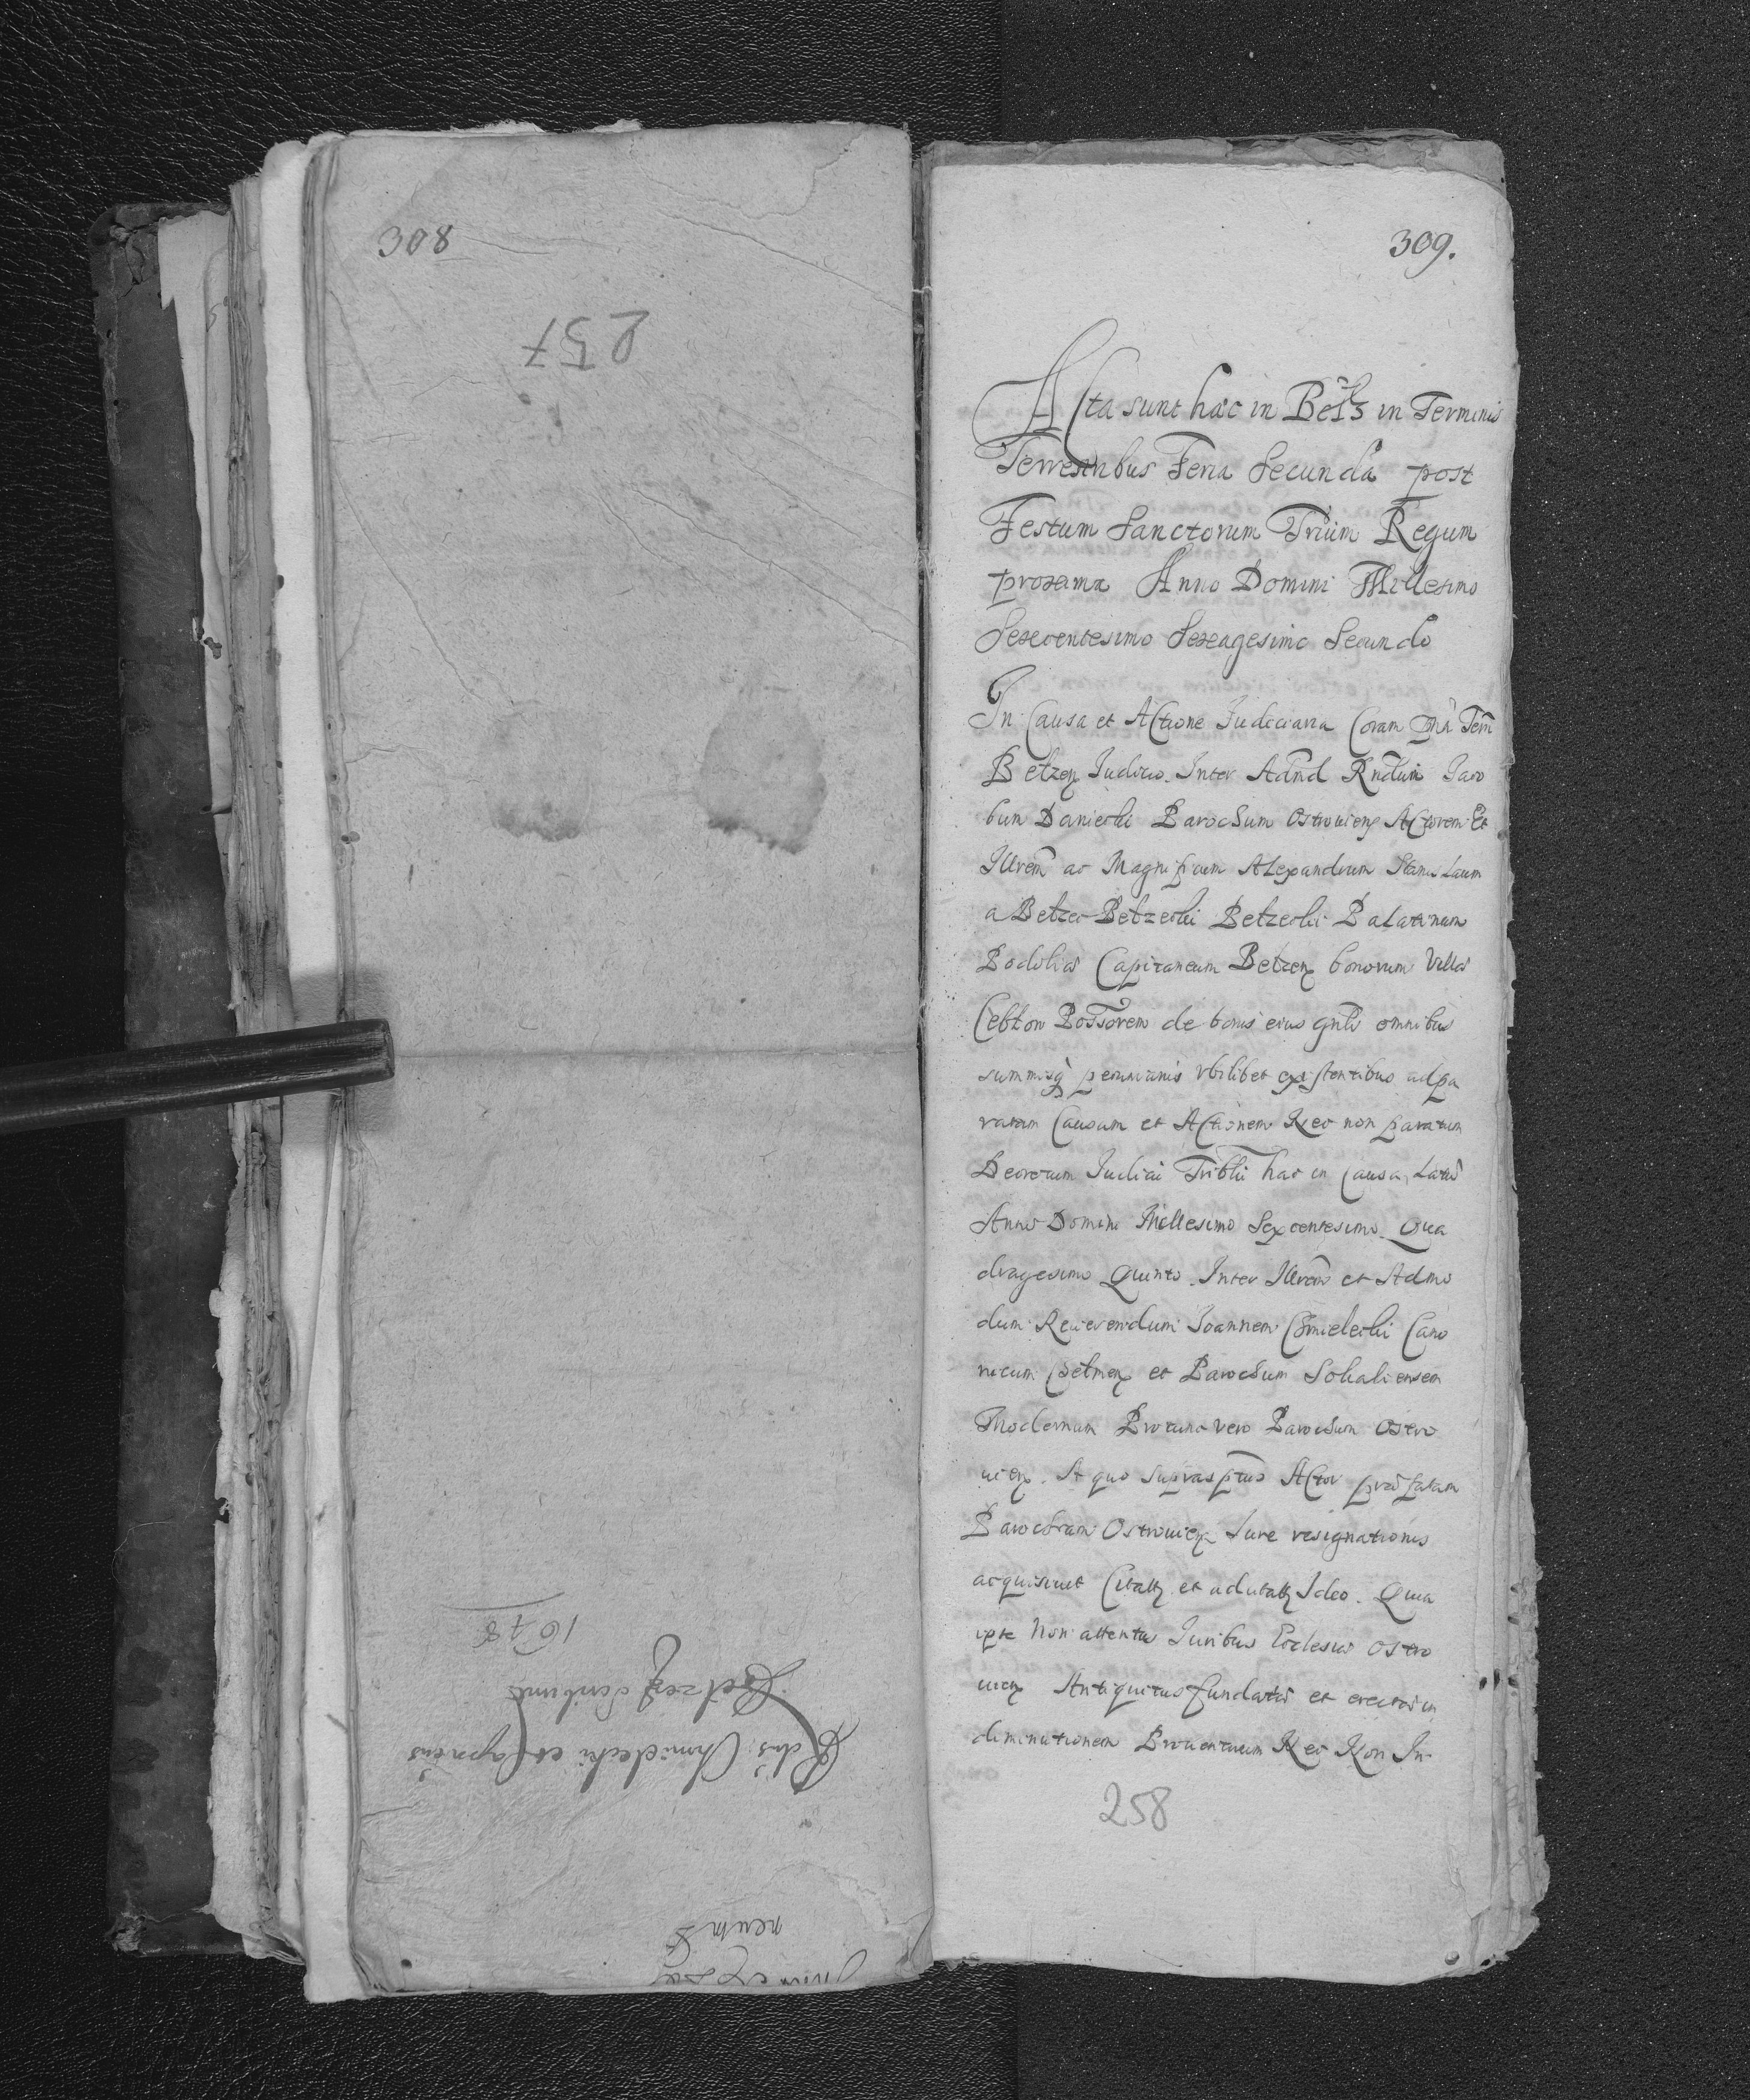 308
257
1678
Rdus Chmielecki et Capneus
Betzen
neum
309.
Acta sunt hæc in Betz in Terminis
Terrestribus Feria Secunda post
Festum Sanctorum Trium Regum
proxima Anno Domini Millesimo
Sexcentesimo Sexagesimo Secundo
In Causa et Actione Iudiciaria Coram Terri
Betzen Iudicio. Inter Admd Rndum Iaco
bum Daniecki Parochum Ostrouien Actorem Et
Illrem ac Magnificum Alexandrum Stanislaum
a Betzec Betzecki Betzecki Palatinum
Podoliæ Capitaneum Betzen bonorum Villæ
Cebłow Possorem de bonis eius gnlr omnibus
summisq pecuniariis vbilibet existentibus ad pa
ratam Causam et Actionem Nec non paratum
Decretum Iudicii Triblis hac in Causa Latū
Anno Domini Millesimo Sexcentesimo Qua
dragesimo Quinto. Inter Illrem et Admo
dum Reuerendum Ioannem Chmielecki Cano
nicum Chelmen et Parochum Sokaliensem
Modernum Protunc vero Parochum Ostro
uien. A quo suprasptus Actor præfatam
Parochiam Ostrouien Iure resignationis
acquisiuit Citatū et adcitatū Ideo. Quia
ipse Non attentis Iuribus Ecclesiæ Ostro
uien Antiquitus fundatæ et erectæ in
diminutionem Prouentuum Nec Non In
258